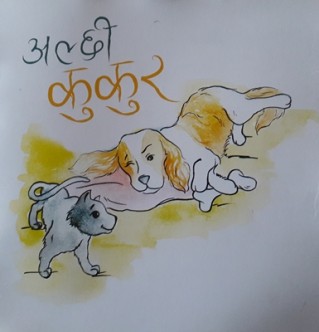 अल्छी
कुकुर